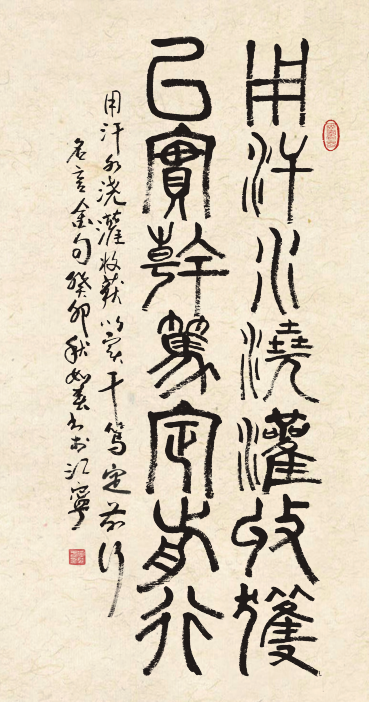 用汗水澆灌收穫
以實幹篤定前行
用汗水浇灌收获以实干笃定前行
名言金句癸卯秋如春书于江寧